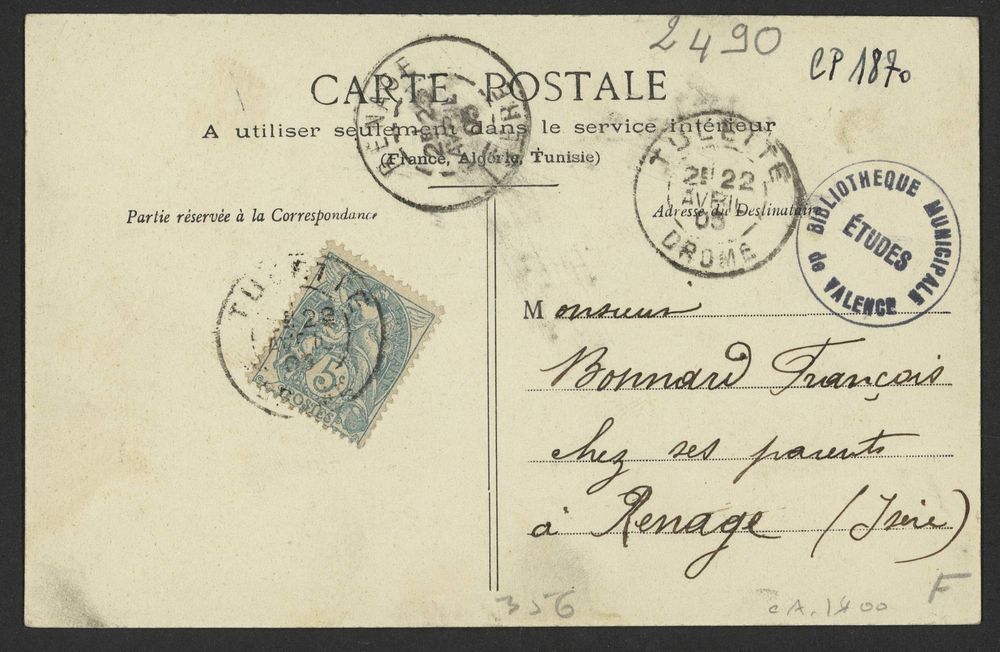 2490
CP 1870
CARTE POSTALE
A utiliser seulement dans le service intérieur
(France, Algérie, Tunisie)
RENAGE
22
ISERE
TULETTE
2E 22
AVRIL
05
DROME
BIBLIOTHEQUE MUNICIPALE
ÉTUDES
de VALENCE
Partie réservée à la Correspondance
Adresse du Destinataire
TULETTE
22
5c
POSTES
Monsieur
Bonnard François
chez ses parents
à Renage (Isère)
356
CA.1900
F